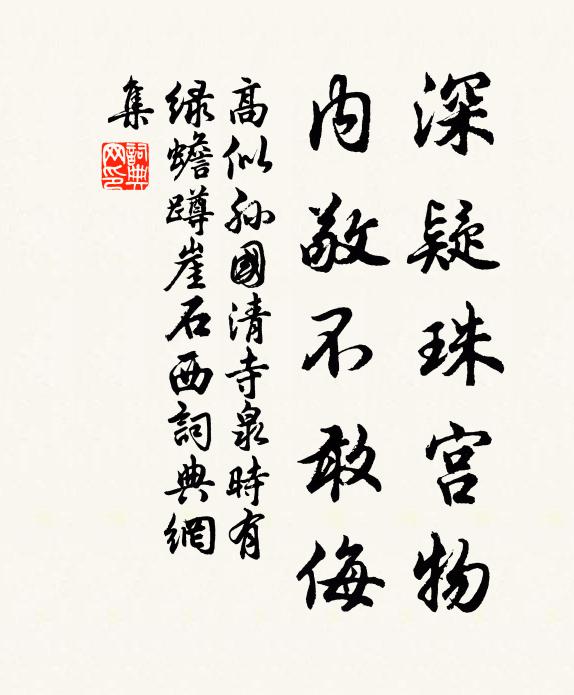 深疑珠宫物
内敬不敢侮
高似孙國清寺泉時有
绿蟾蹲崖石西詞典網
集
詞典
网印